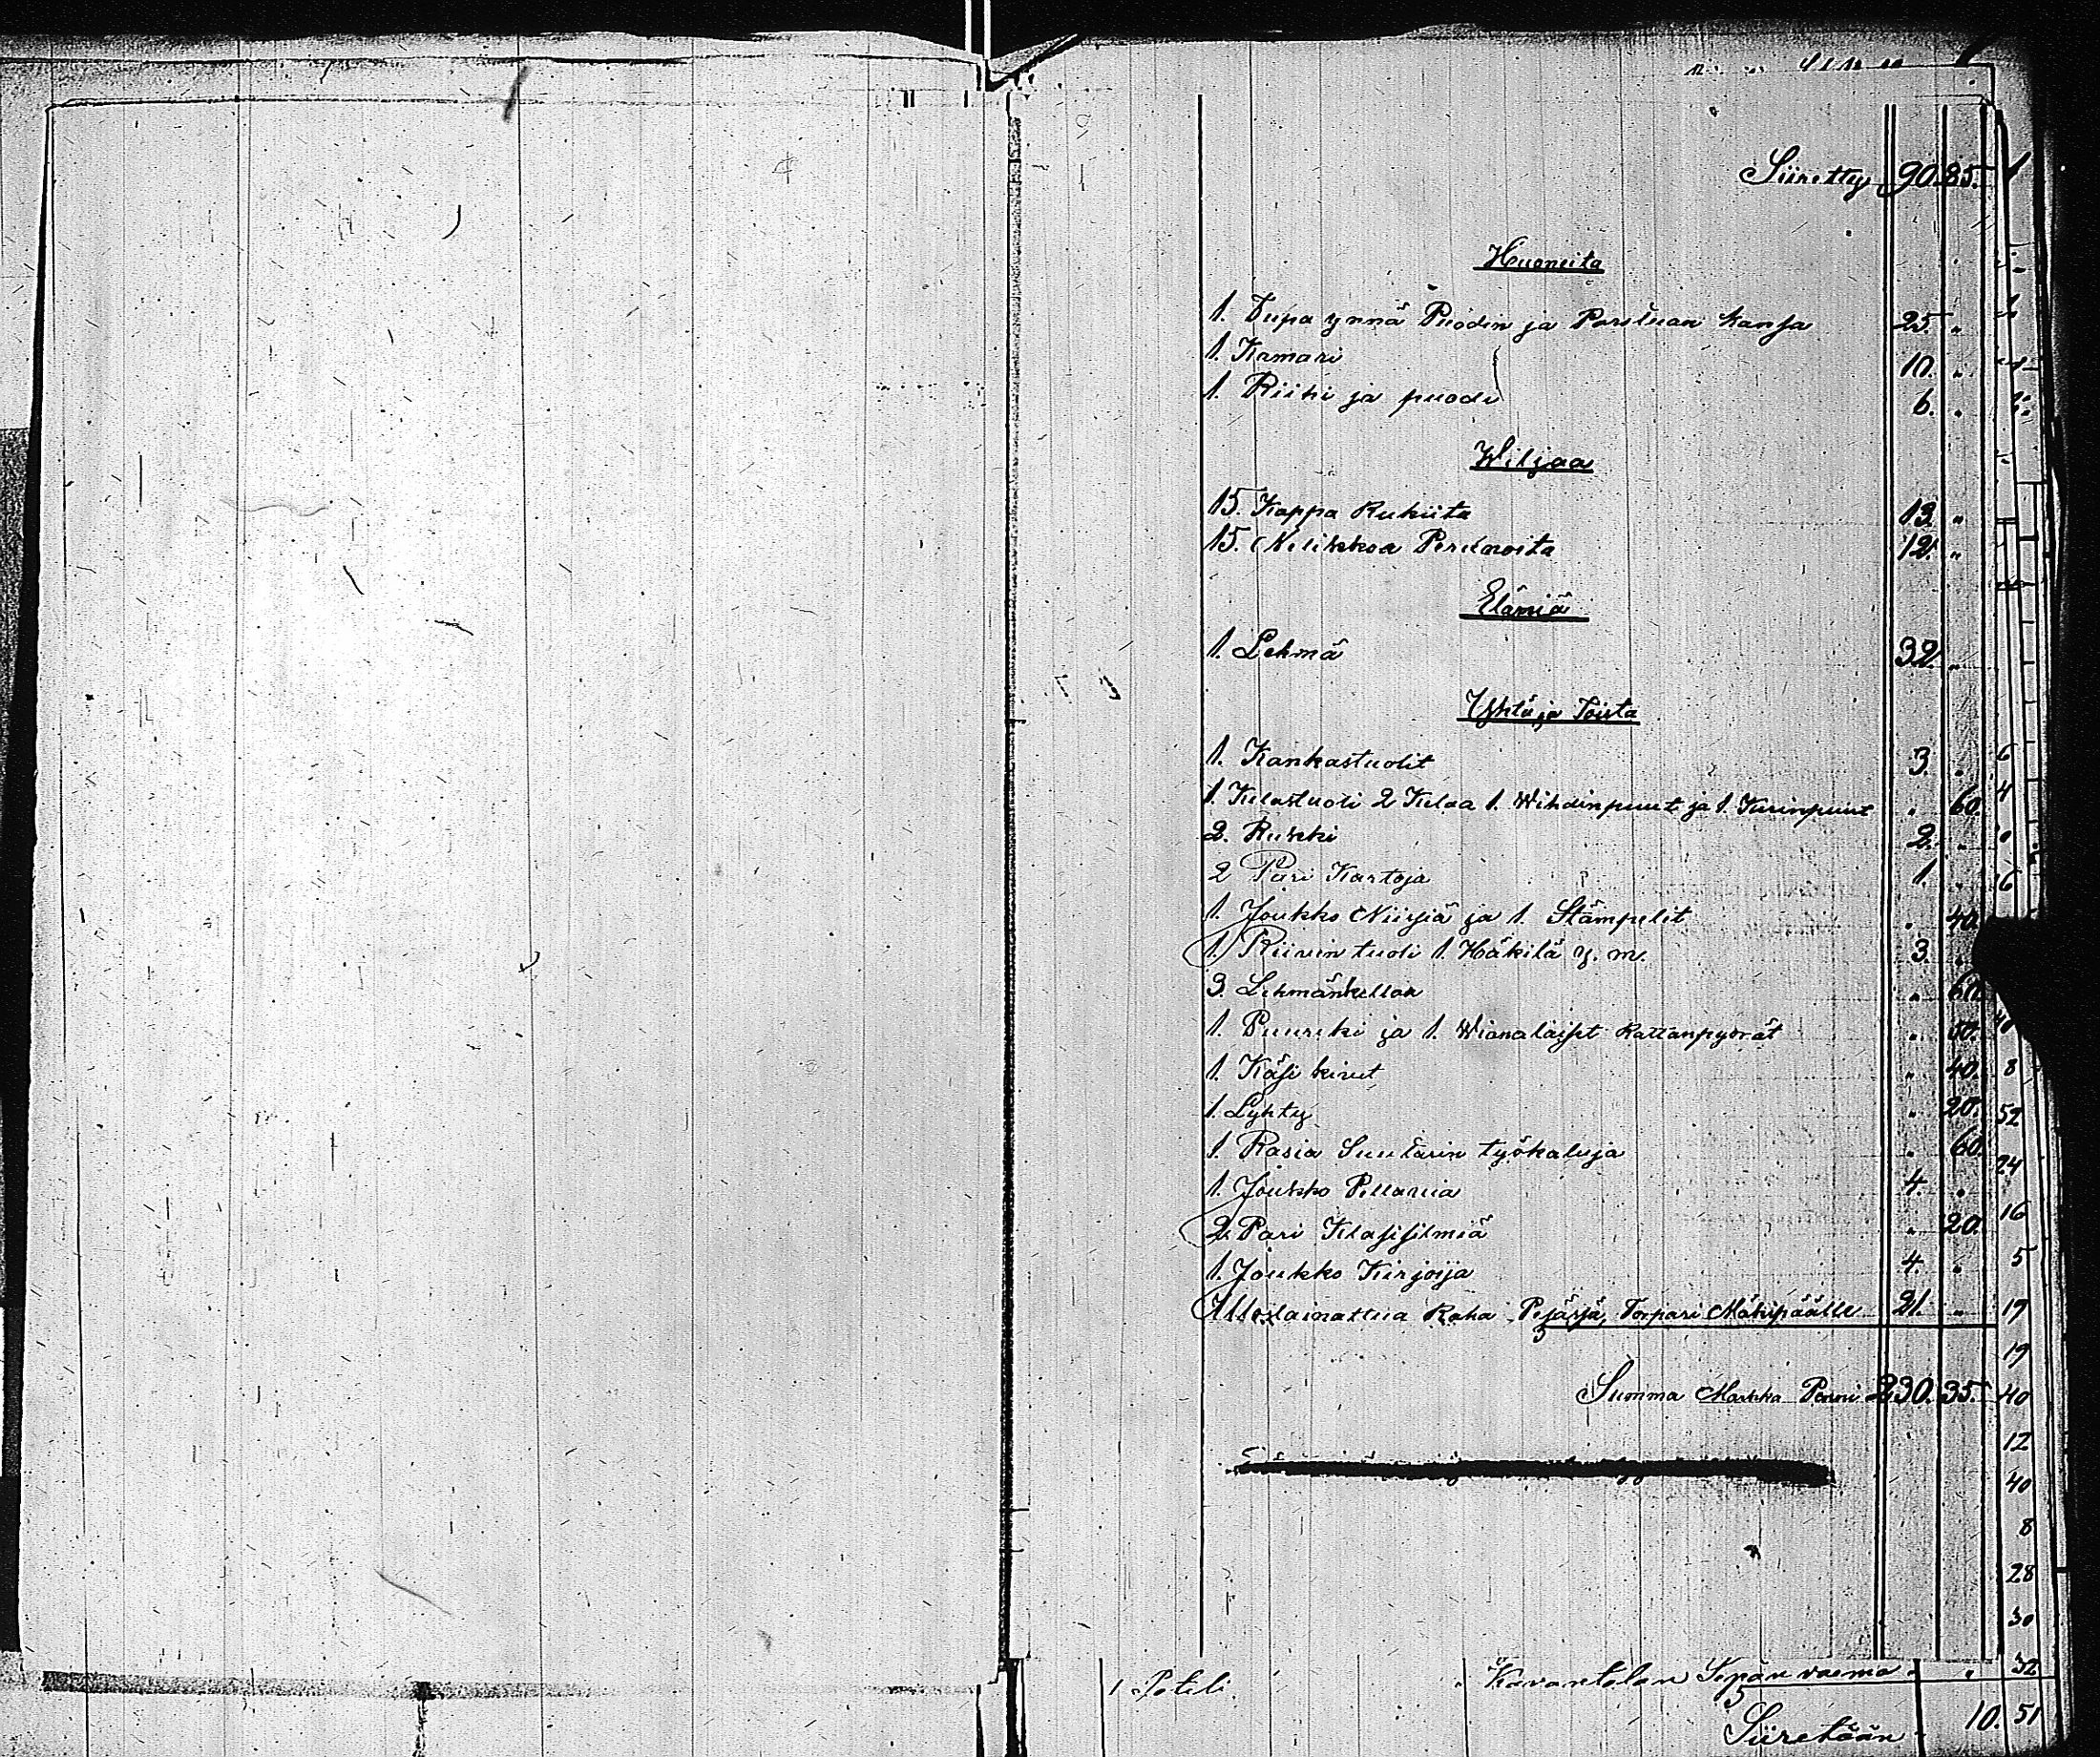 Siirretty 90. 85.
Huoneita
1. Tupa ynnä Puodin ja Porstuan kansa 25. "
1. Kamari 10. "
1. Riihi ja puodi 6. "
Wiljaa
15. Kappa Rukiita 13. "
15. Nelikkoa Perunoita 12. "
Elämiä
1. Lehmä 32. "
Yhtä ja Toista
1. Kankastuolit 3. "
1. Kelastuoli 2 Kelaa 1. Wihdinpuut ja 1. Kerinpuut " 60.
2. Rukki 2. "
2 Pari Kartoja 1. "
1. Joukko Niisiä ja 1. Stämpelit " 40.
1. Riivin tuoli 1. Häkilä y. m. 3. "
3. Lehmänkelloa " 60.
1. Puureki ja 1. Wianalaiset Rattanpyörät " 50.
1. Käsi kivet " 40.
1. Lyhty " 20.
1. Rasia Suutarin työkaluja " 60.
1. Joukko Pellavia 4. "
2. Pari Klasisilmiä " 20.
1. Joukko Kirjoja 4. "
Uloslainattua Raha Pejärjä, Torpari Mäkipäälle 21. "
Summa Markka Penni 230. 35.
6
4
6
8
52
24
16
5
19
19
40
12
40
8
28
30
1 Poteli. " Kavantolan Sepän vaimo " " 32
Siiretään 10. 51